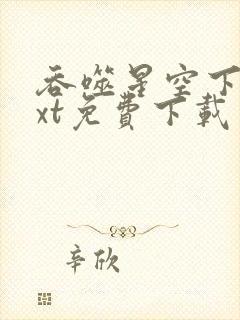 吞噬星空下
xt免費下載
辛欣